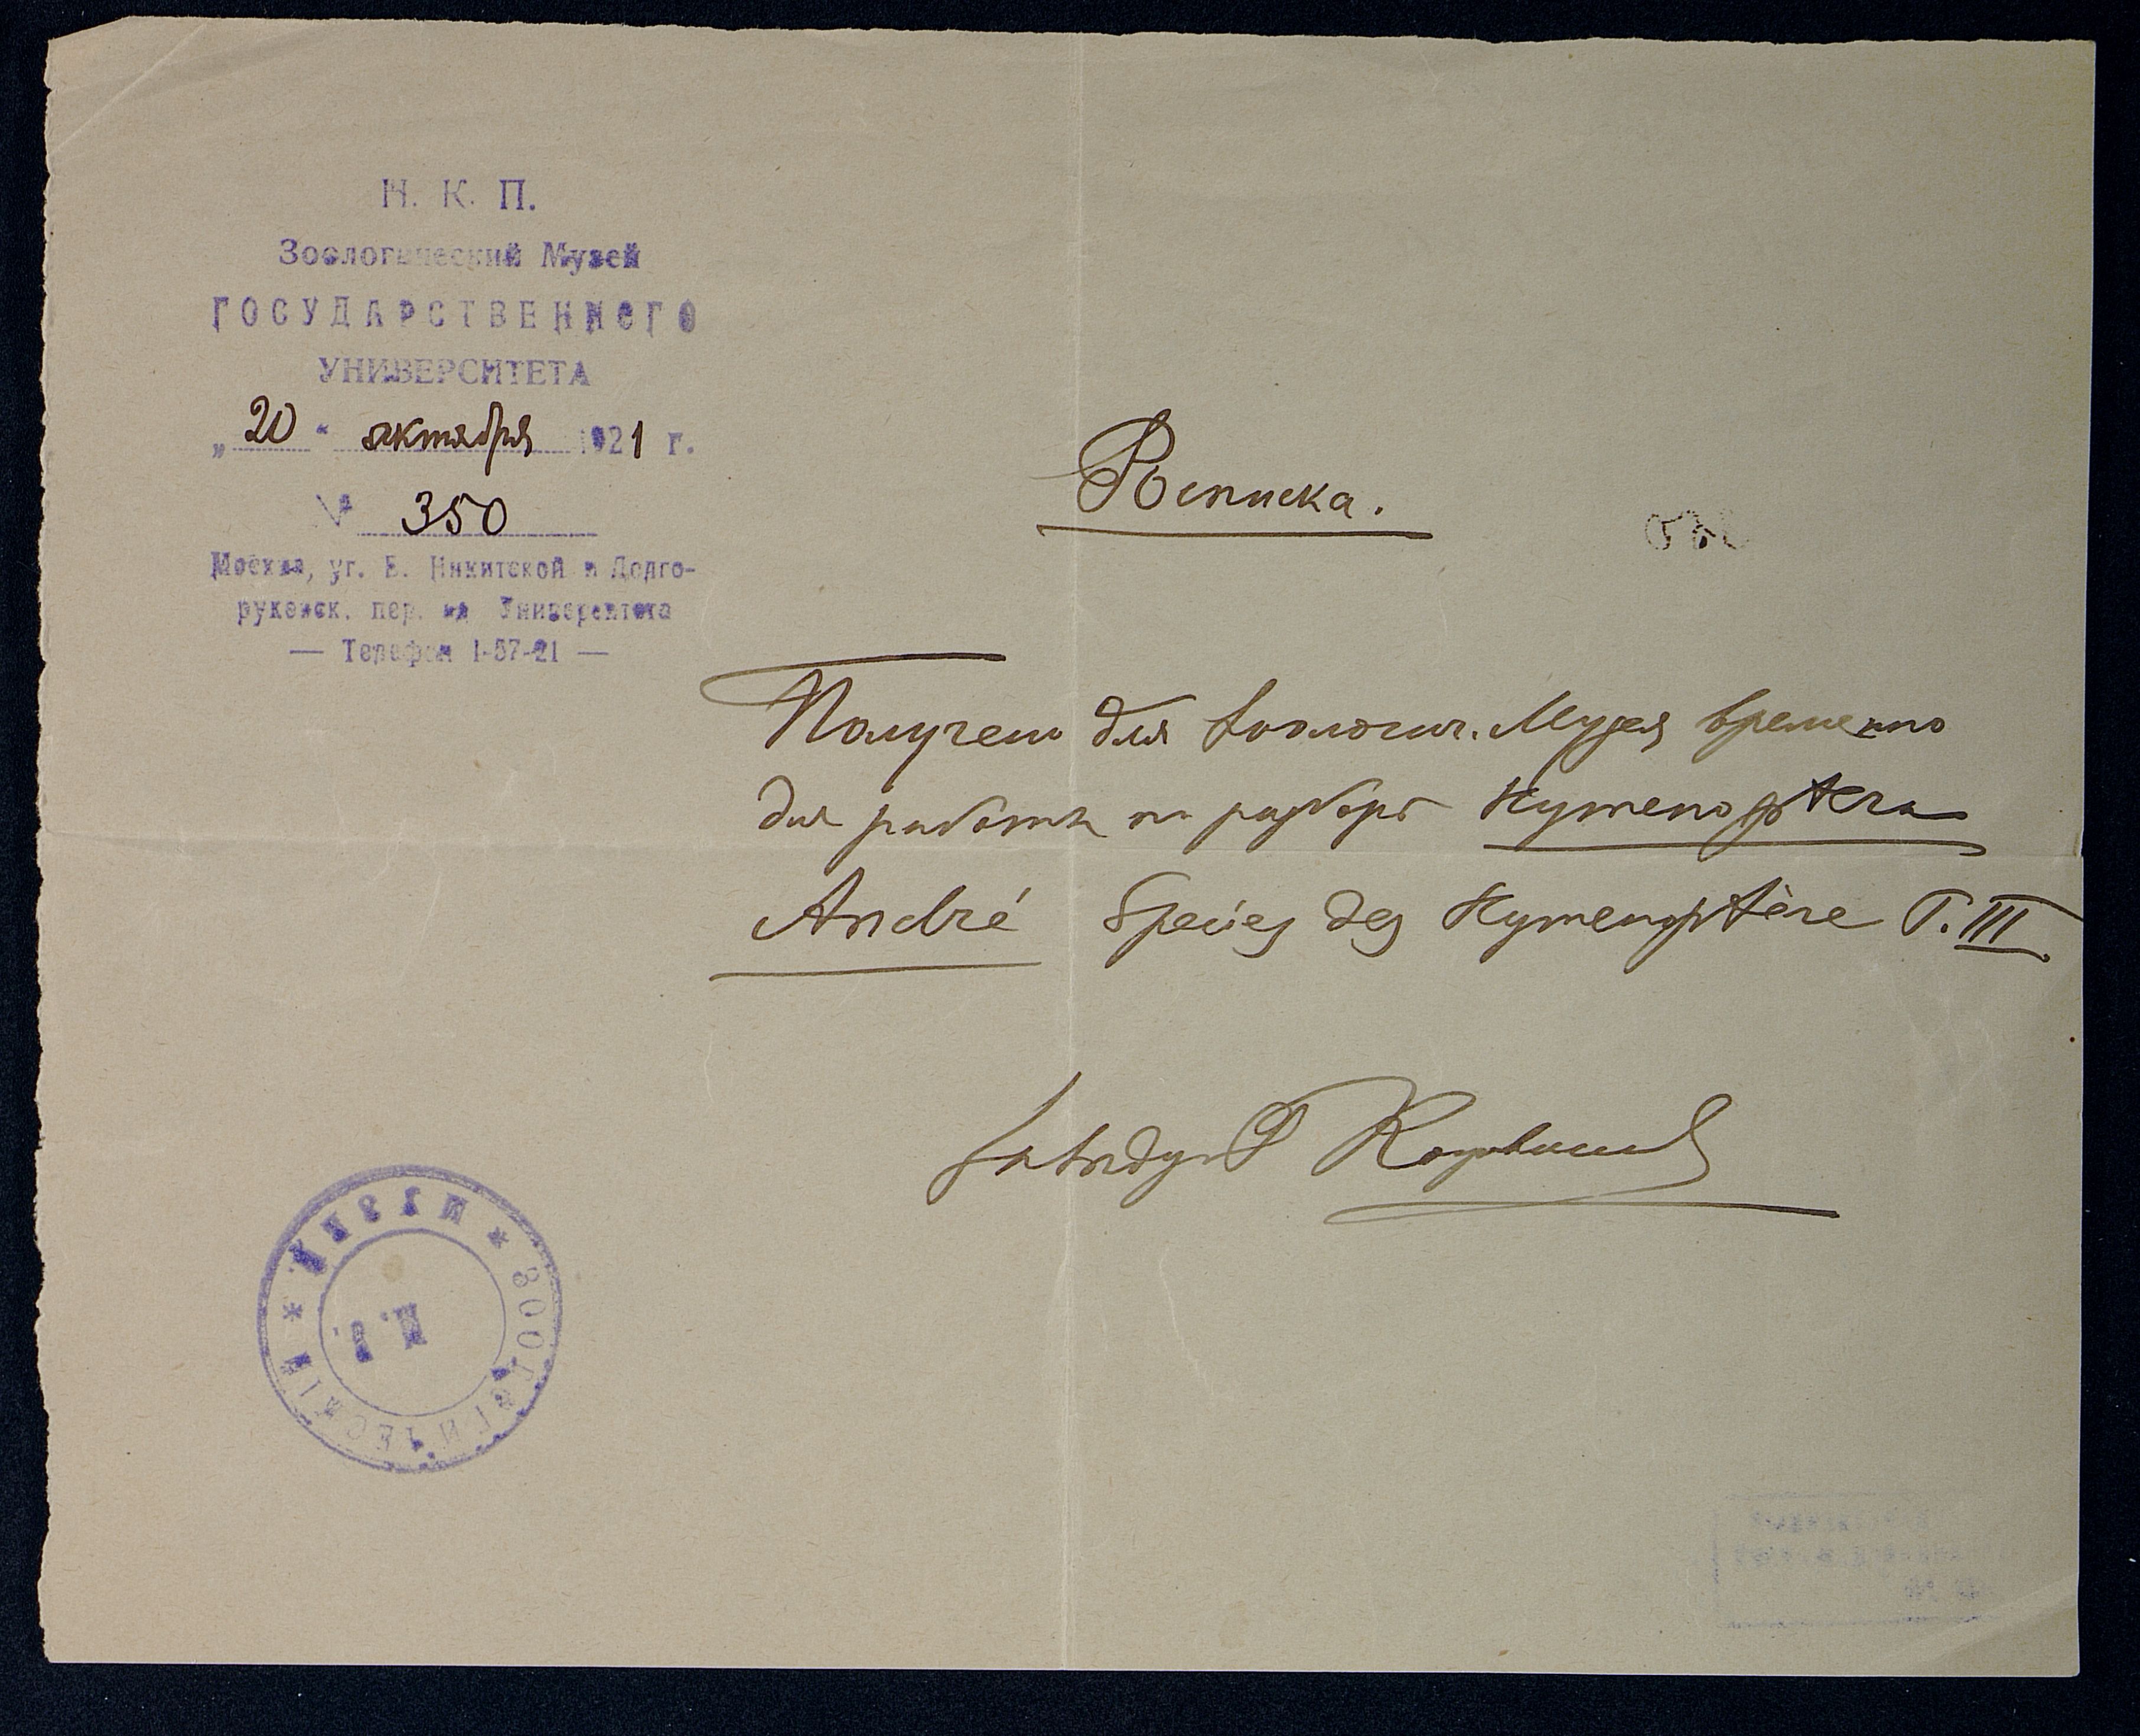 Н. К. П.
Зоологический Музей
ГОСУДАРСТВЕННОГО
УНИВЕРСИТЕТА
„20“ октября 1921 г.
№ 350
Москва, уг. Б. Никитской и Долго-
руковск. пер. Университета
— Телефон 1-57-21 —
Росписка.
Получено для Зоологич. Музея временно
для работы по разбору Hymenoptera
André Species des Hymenoptère T. III
Заведующ
* ЗООЛОГИЧЕСКІЙ * МУЗЕЙ